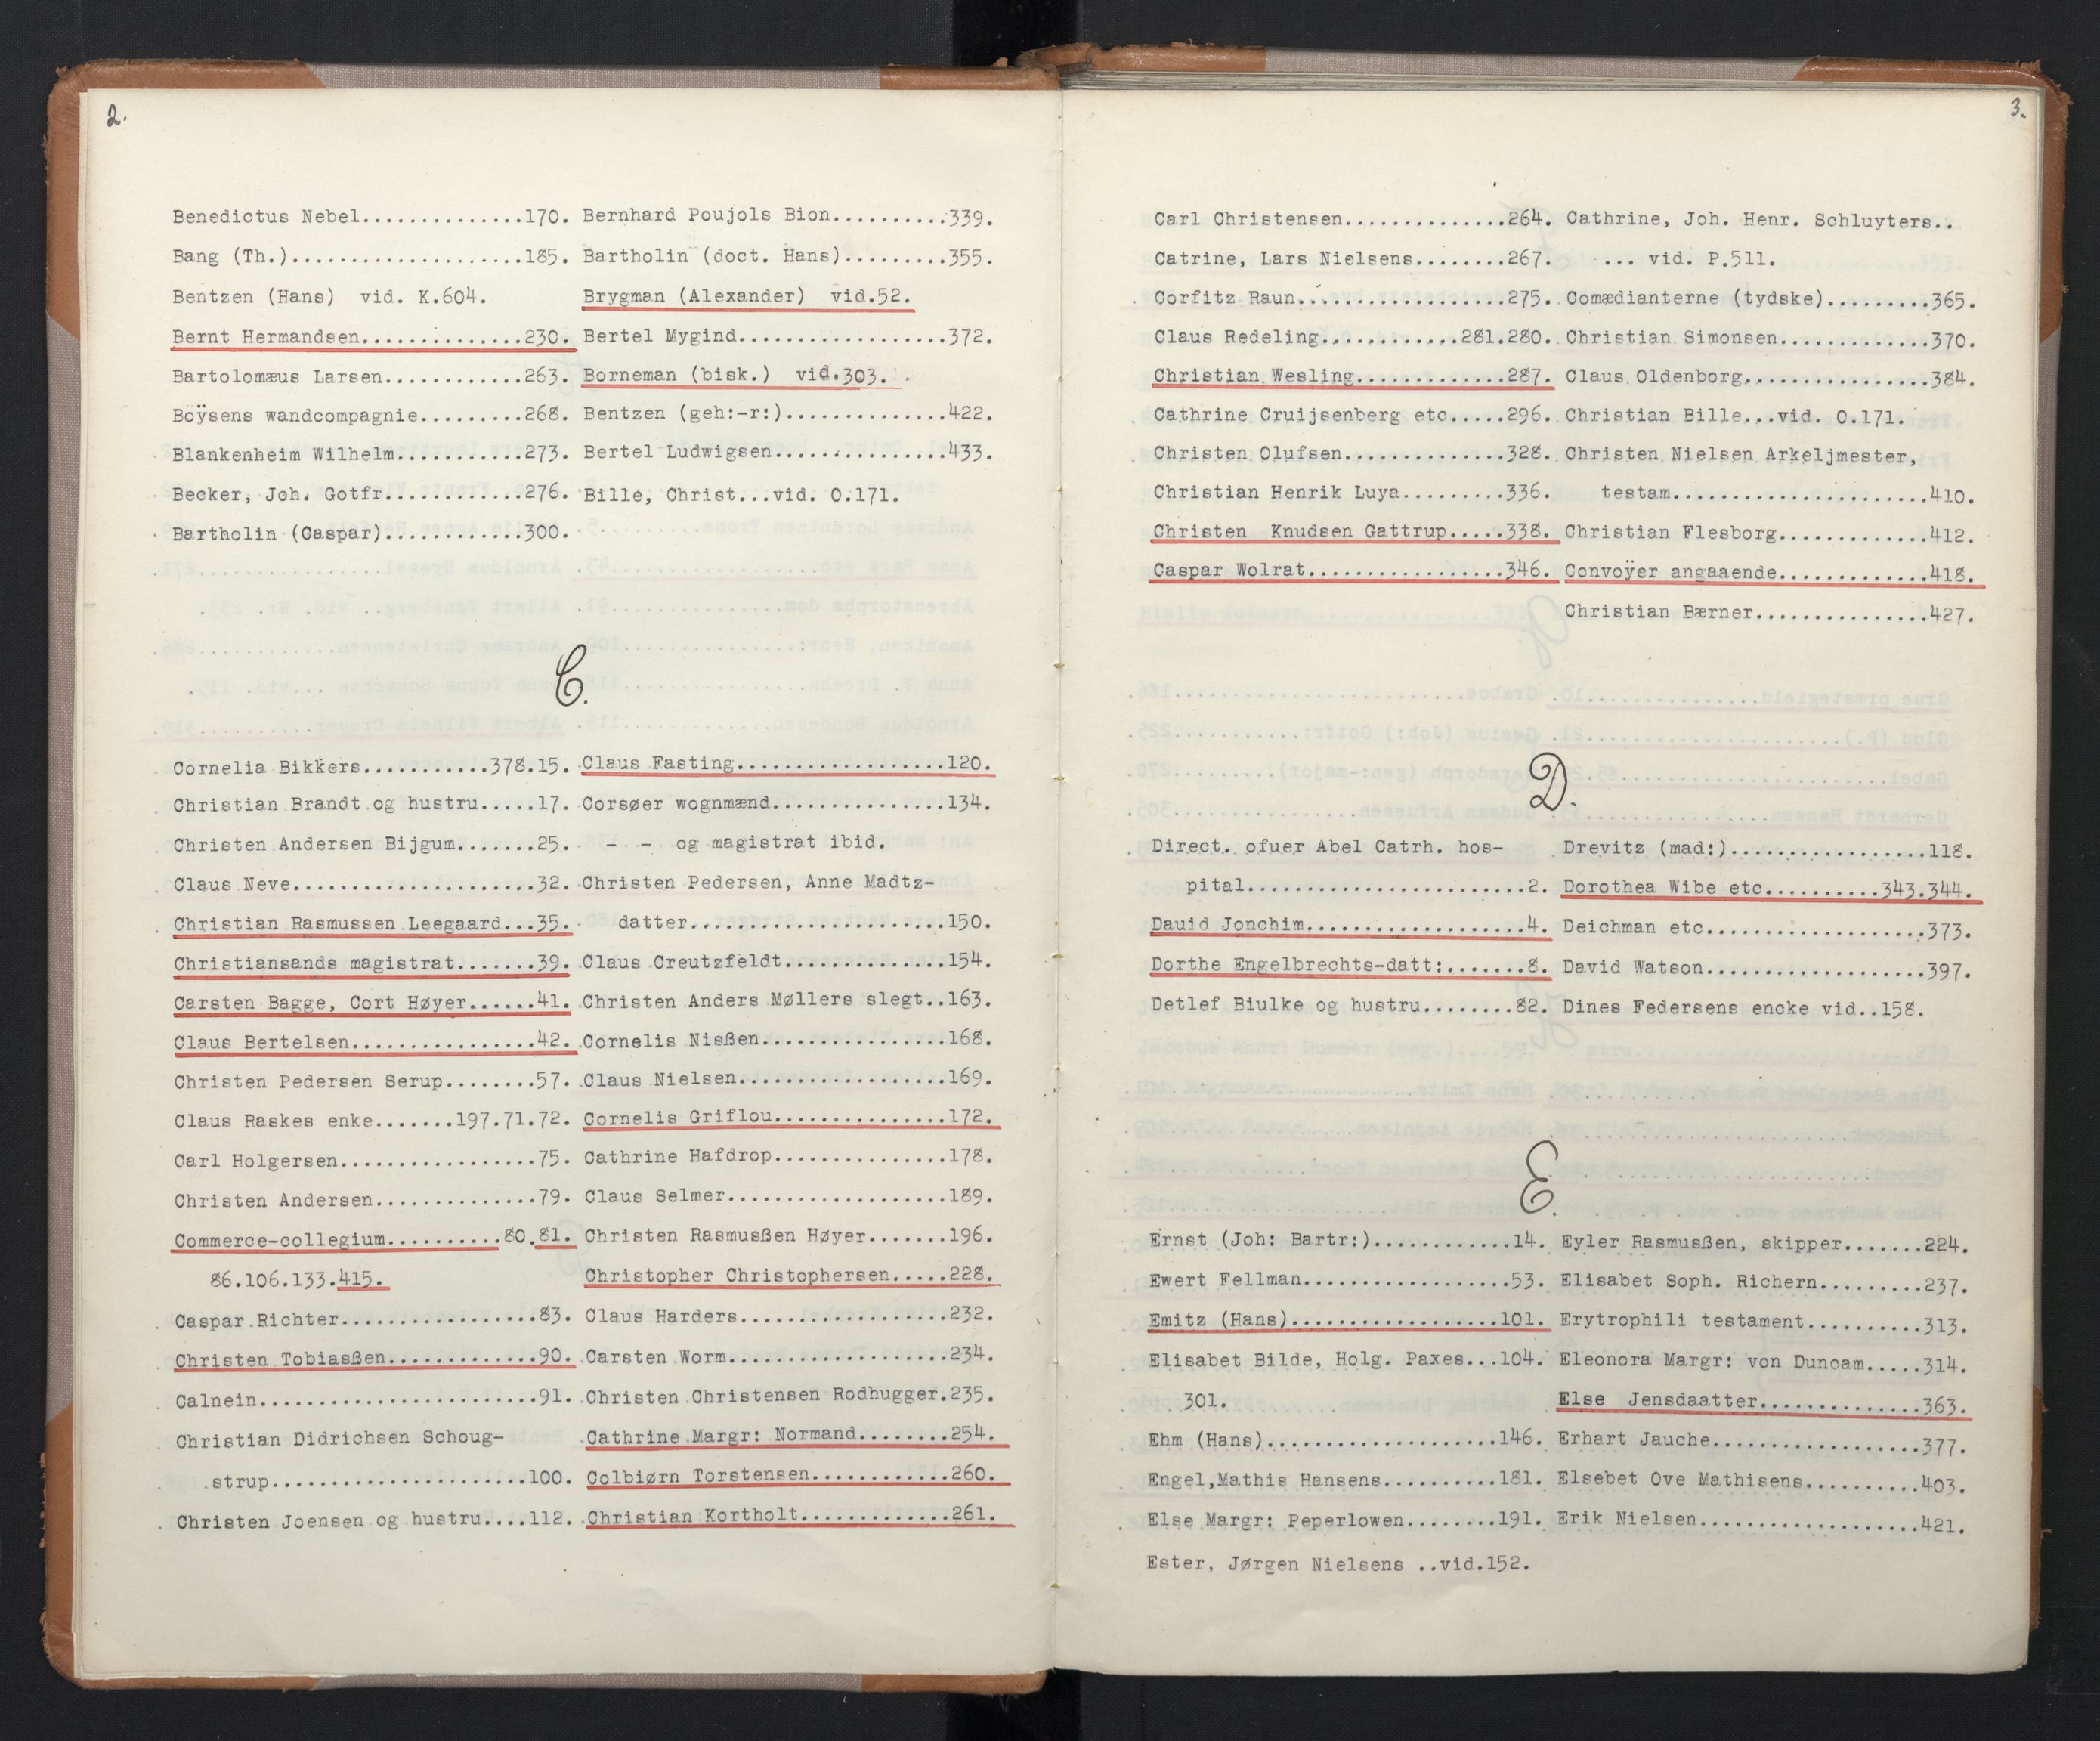 2.
Benedictus Nebel..............170.
Bang (Th.)....................185.
Bentzen (Hans) vid. K.604.
Bernt Hermandsen..............230.
Bartolomæus Larsen............263.
Boÿsens wandcompagnie.........268.
Blankenheim Wilhelm...........273.
Becker, Joh. Gotfr............276.
Bartholin (Caspar)............300.
Bernhard Poujols Bion..........339.
Bartholin (doct. Hans).........355.
Brygman (Alexander) vid.52.
Bertel Mygind..................372.
Borneman (bisk.) vid.303.
Bentzen (geh:-r:)..............422.
Bertel Ludwigsen...............433.
Bille, Christ...vid. O.171.
C.
Cornelia Bikkers...........378.15.
Christian Brandt og hustru.....17.
Christen Andersen Bijgum.......25.
Claus Neve.....................32.
Christian Rasmussen Leegaard...35.
Christiansands magistrat.......39.
Carsten Bagge, Cort Høyer......41.
Claus Bertelsen................42.
Christen Pedersen Serup........57.
Claus Raskes enke.......197.71.72.
Carl Holgersen.................75.
Christen Andersen..............79.
Commerce-collegium..........80.81.
86.106.133.415.
Caspar Richter.................83.
Christen Tobiasßen.............90.
Calnein........................91.
Christian Didrichsen Schoug-
strup......................100.
Christen Joensen og hustru....112.
Claus Fasting..................120.
Corsøer wognmænd...............134.
- - og magistrat ibid.
Christen Pedersen, Anne Madtz-
datter......................150.
Claus Creutzfeldt..............154.
Christen Anders Møllers slegt..163.
Cornelis Nisßen................168.
Claus Nielsen..................169.
Cornelis Griflou...............172.
Cathrine Hafdrop...............178.
Claus Selmer...................189.
Christen Rasmusßen Høyer.......196.
Christopher Christophersen.....228.
Claus Harders..................232.
Carsten Worm...................234.
Christen Christensen Rodhugger.235.
Cathrine Margr: Normand........254.
Colbiørn Torstensen............260.
Christian Kortholt.............261.
3.
Carl Christensen..............264.
Catrine, Lars Nielsens........267.
Corfitz Raun..................275.
Claus Redeling............281.280.
Christian Wesling.............287.
Cathrine Cruijsenberg etc.....296.
Christen Olufsen..............328.
Christian Henrik Luya.........336.
Christen Knudsen Gattrup.....338.
Caspar Wolrat.................346.
Cathrine, Joh. Henr. Schluyters..
... vid. P.511.
Comædianterne (tydske).........365.
Christian Simonsen.............370.
Claus Oldenborg................384.
Christian Bille...vid. O.171.
Christen Nielsen Arkeljmester,
testam......................410.
Christian Flesborg.............412.
Convoÿer angaaende.............418.
Christian Bærner...............427.
D.
Direct. ofuer Abel Catrh. hos-
pital........................2.
Dauid Jonchim...................4.
Dorthe Engelbrechts-datt:.......8.
Detlef Biulke og hustru........82.
Drevitz (mad:).................118.
Dorothea Wibe etc..........343.344.
Deichman etc...................373.
David Watson...................397.
Dines Federsens encke vid..158.
E.
Ernst (Joh: Bartr:)............14.
Ewert Fellman..................53.
Emitz (Hans)..................101.
Elisabet Bilde, Holg. Paxes...104.
301.
Ehm (Hans)....................146.
Engel,Mathis Hansens..........181.
Else Margr: Peperlowen........191.
Ester, Jørgen Nielsens ..vid.152.
Eyler Rasmusßen, skipper.......224.
Elisabet Soph. Richern.........237.
Erytrophili testament..........313.
Eleonora Margr: von Duncam.....314.
Else Jensdaatter..............363.
Erhart Jauche..................377.
Elsebet Ove Mathisens..........403.
Erik Nielsen...................421.